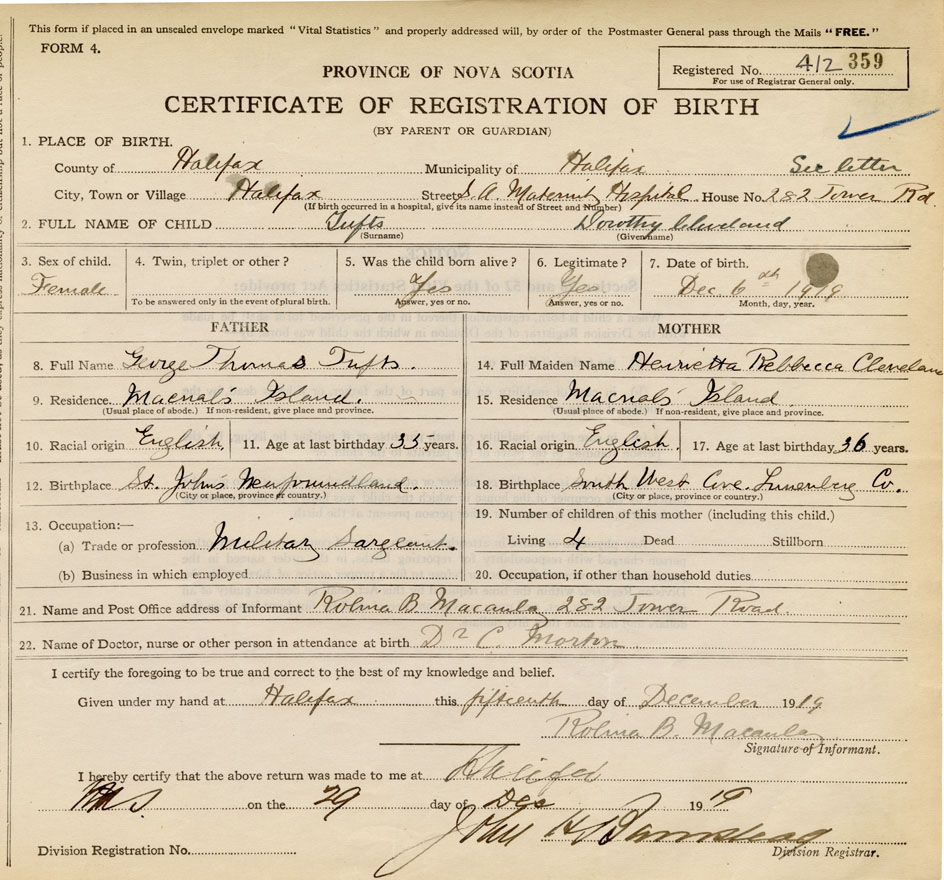 This form if placed in an unsealed envelope marked "Vital Statistics" and properly addressed will, by order of the Postmaster General pass through the Mails "FREE."
FORM 4.
Registered No. 412 359
For use of Registrar General only.
PROVINCE OF NOVA SCOTIA
CERTIFICATE OF REGISTRATION OF BIRTH
(BY PARENT OR GUARDIAN)
1. PLACE OF BIRTH.
County of Halifax Municipality of Halifax See letter
City, Town or Village Halifax Street S. A. Maternity Hospital House No. 282 Tower Rd.
(If birth occurred in a hospital, give its name instead of Street and Number)
2. FULL NAME OF CHILD Tufts Dorothy Cleveland
(Surname) (Given name)
3. Sex of child. 4. Twin, triplet or other? 5. Was the child born alive? 6. Legitimate? 7. Date of birth.
Female Yes Yes Dec 6th 1919
To be answered only in the event of plural birth. Answer, yes or no. Answer, yes or no. Month, day, year.
FATHER MOTHER
8. Full Name George Thomas Tufts. 14. Full Maiden Name Henrietta Rebbecca Cleveland
9. Residence. Macnab's Island. 15. Residence Macnab's Island.
(Usual place of abode.) If non-resident, give place and province. (Usual place of abode.) If non-resident, give place and province.
10. Racial origin English, 11. Age at last birthday 35 years. 16. Racial origin English. 17. Age at last birthday 36 years.
12. Birthplace St. John's Newfoundland. 18. Birthplace South West Cove. Lunenberg Co.
(City or place, province or country.) (City or place, province or country.)
13. Occupation:—
(a) Trade or profession Military Sargeant.
(b) Business in which employed
19. Number of children of this mother (including this child.)
Living 4 Dead Stillborn
20. Occupation, if other than household duties
21. Name and Post Office address of Informant Rolina B Macaulay 282 Tower Road.
22. Name of Doctor, nurse or other person in attendance at birth Dr C. Morton
I certify the foregoing to be true and correct to the best of my knowledge and belief.
Given under my hand at Halifax this fifteenth day of December 1919
Rolina B. Macaulay
Signature of Informant.
I hereby certify that the above return was made to me at Halifax
on the 29 day of Dec 1919
John H
Division Registration No. Division Registrar.